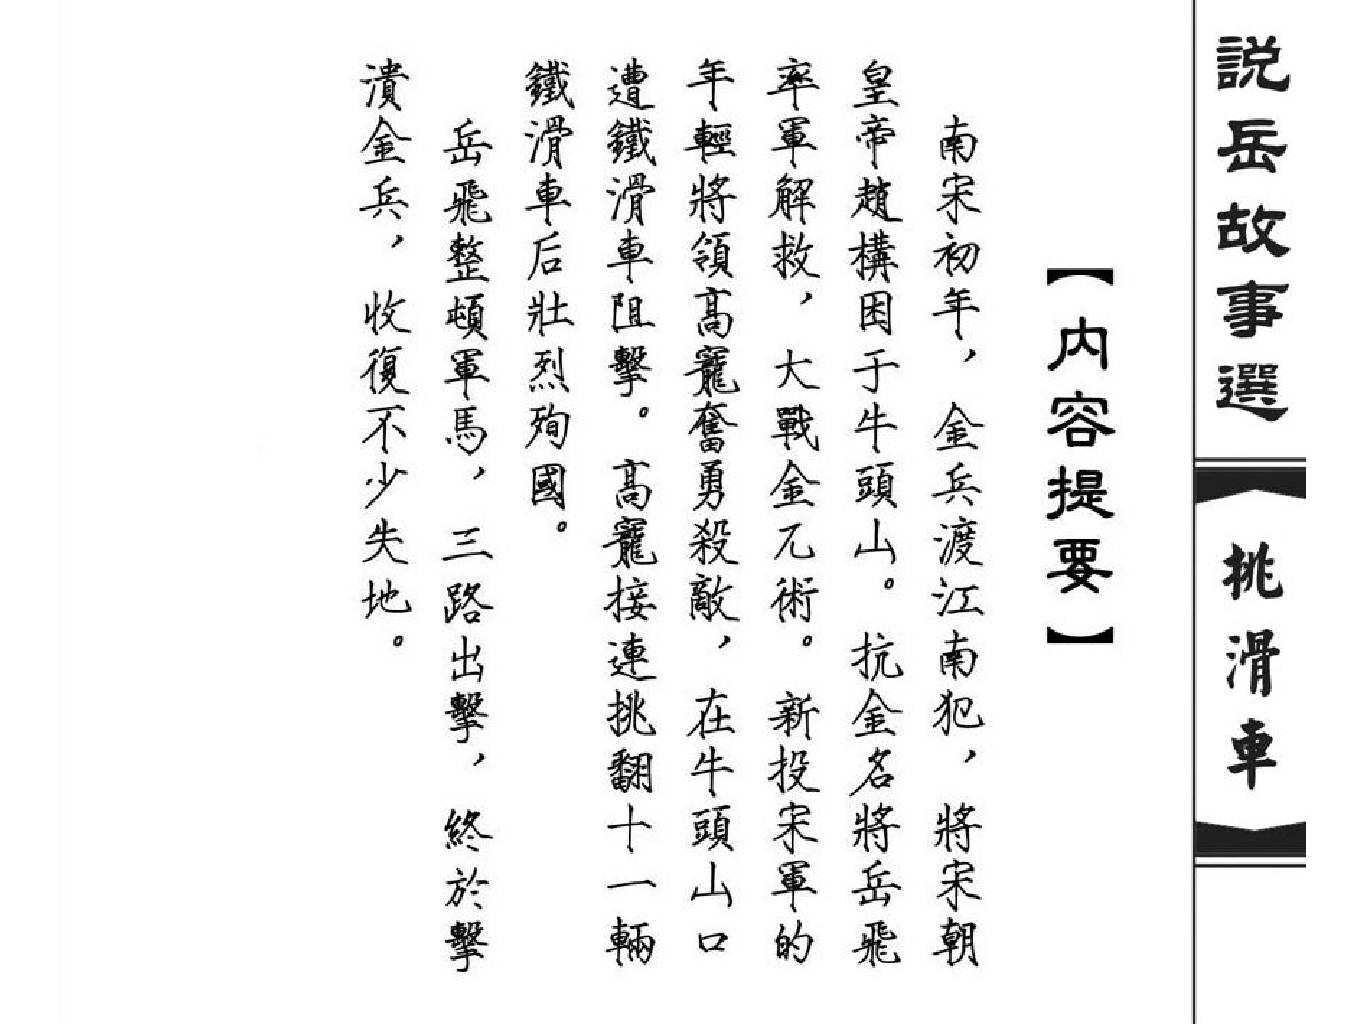 説岳故事選
挑滑車
【内容提要】
南宋初年，金兵渡江南犯，將宋朝
皇帝趙構困于牛頭山。抗金名將岳飛
率軍解救，大戰金兀術。新投宋軍的
年輕將領高寵奮勇殺敵，在牛頭山口
遭鐵滑車阻擊。高寵接連挑翻十一輛
鐵滑車后壯烈殉國。
岳飛整頓軍馬，三路出擊，終於擊
潰金兵，收復不少失地。